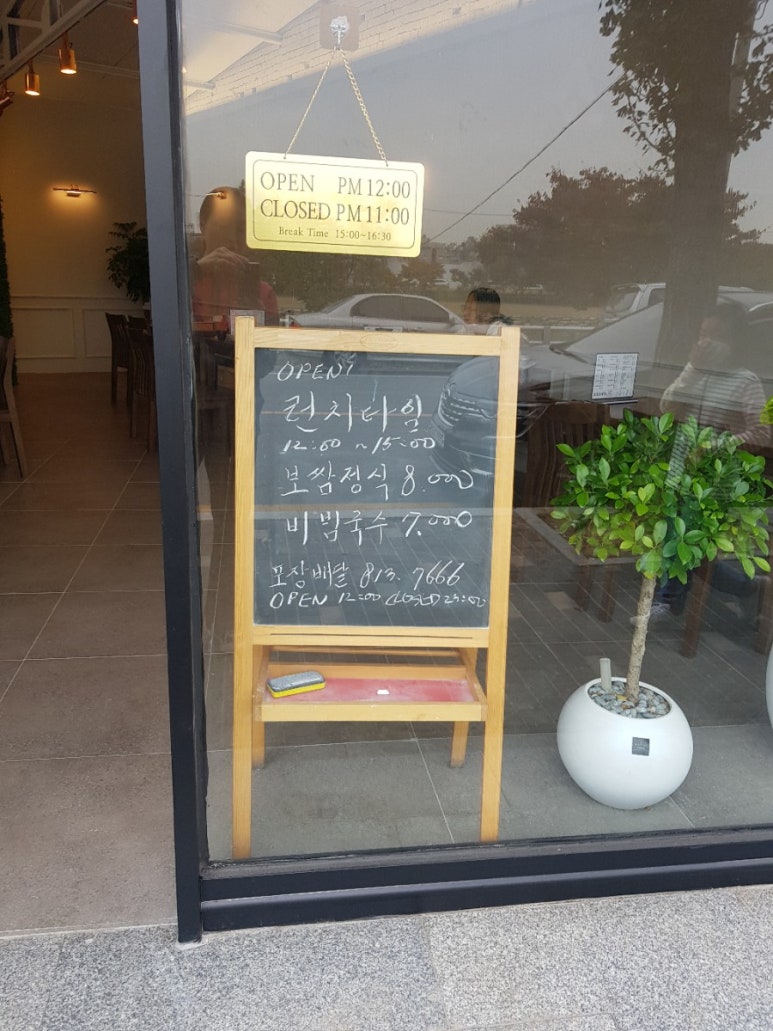 OPEN PM 12:00
CLOSED PM 11:00
Break Time 15:00~16:30
OPEN!
런치타임
12:00 ~ 15:00
보쌈정식 8.000
비빔국수 7.000
포장배달 813.7666
OPEN 12:00 CLOSED 23:00